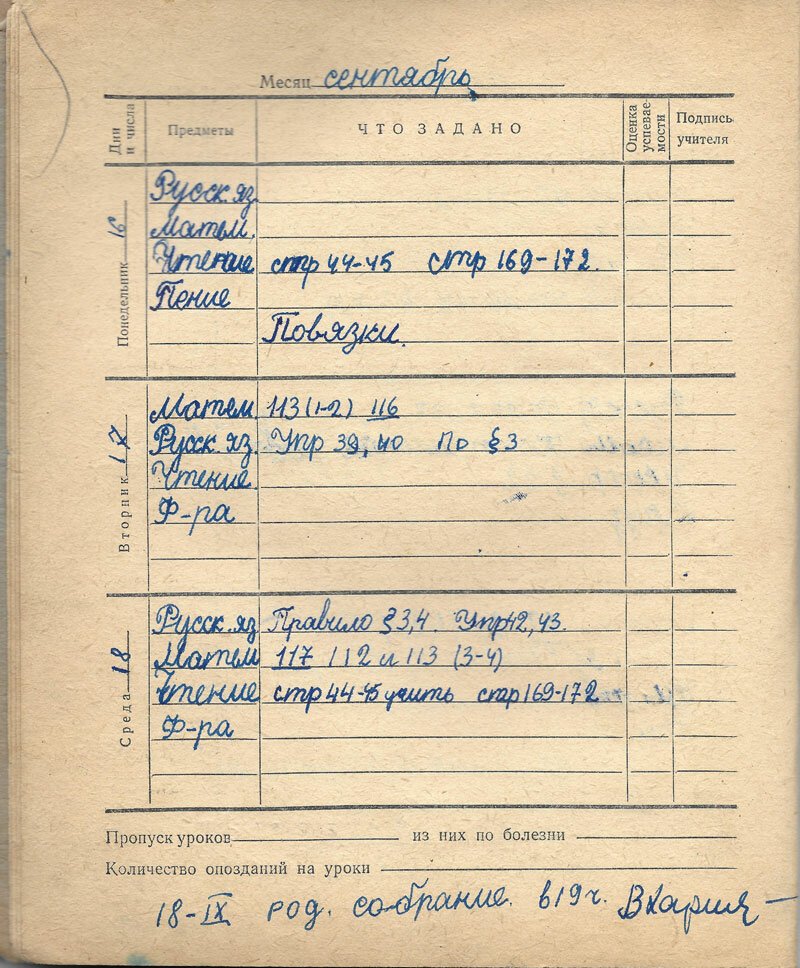 Месяц сентябрь
Дни и числа Предметы ЧТО ЗАДАНО Оценка успевае-мости Подпись учителя
Понедельник 16
Русск. яз.
Матем.
Чтение стр 44-45 стр 169-172.
Пение
Повязки.
Вторник 17
Матем. 113 (1-2) 116
Русск. яз. Упр 39, 40 По § 3
Чтение.
Ф-ра
Среда 18
Русск. яз Правило § 3,4. Упр 42, 43.
Матем 117 112 и 113 (3-4)
Чтение стр 44-45 учить стр 169-172
Ф-ра
Пропуск уроков из них по болезни
Количество опозданий на уроки
18-IX род. собрание. в 19 ч.